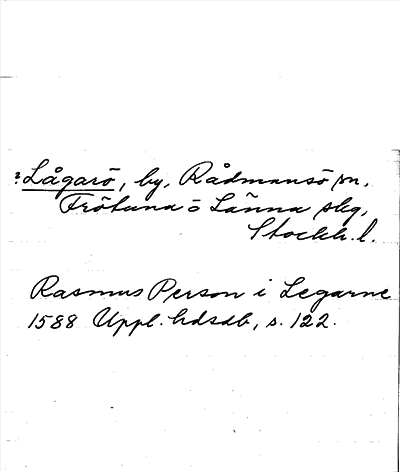 ? Lågarö, by, Rådmansö sn,
Frötuna o Länna skg,
Stockh. l.
Rasmus Person i Legarne
1588 Uppl. hdsdb, s. 122.